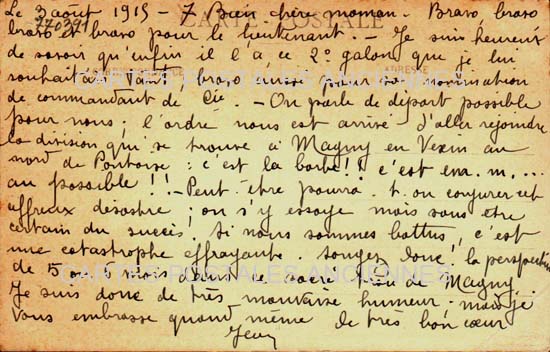 Le 3 août 1915 - 7 Bien chère maman. Bravo, bravo
bravo et bravo pour le lieutenant. - Je suis heureux
de savoir qu'enfin il l'a ce 2º galon que je lui
souhaitais tant, bravo aussi pour sa nomination
de commandant de Cie. - On parle de départ possible
pour nous; l'ordre nous est arrivé d'aller rejoindre
la division qui se trouve à Magny en Vexin au
nord de Pontoise: c'est la barbe!! c'est em. m....
au possible!! - Peut être pourra. t. on conjurer cet
affreux désastre; on s'y essaye mais sans être
certain du succès. Si nous sommes battus, c'est
une catastrophe effrayante. songez donc, la perspective
de 5 ou 6 mois dans ce sacré trou de Magny.
Je suis donc de très mauvaise humeur. mais je
vous embrasse quand même de très bon cœur
Jean
CARTE POSTALE
ADRESSE
CARTES POSTALES ANCIENNES
CARTES POSTALES ANCIENNES